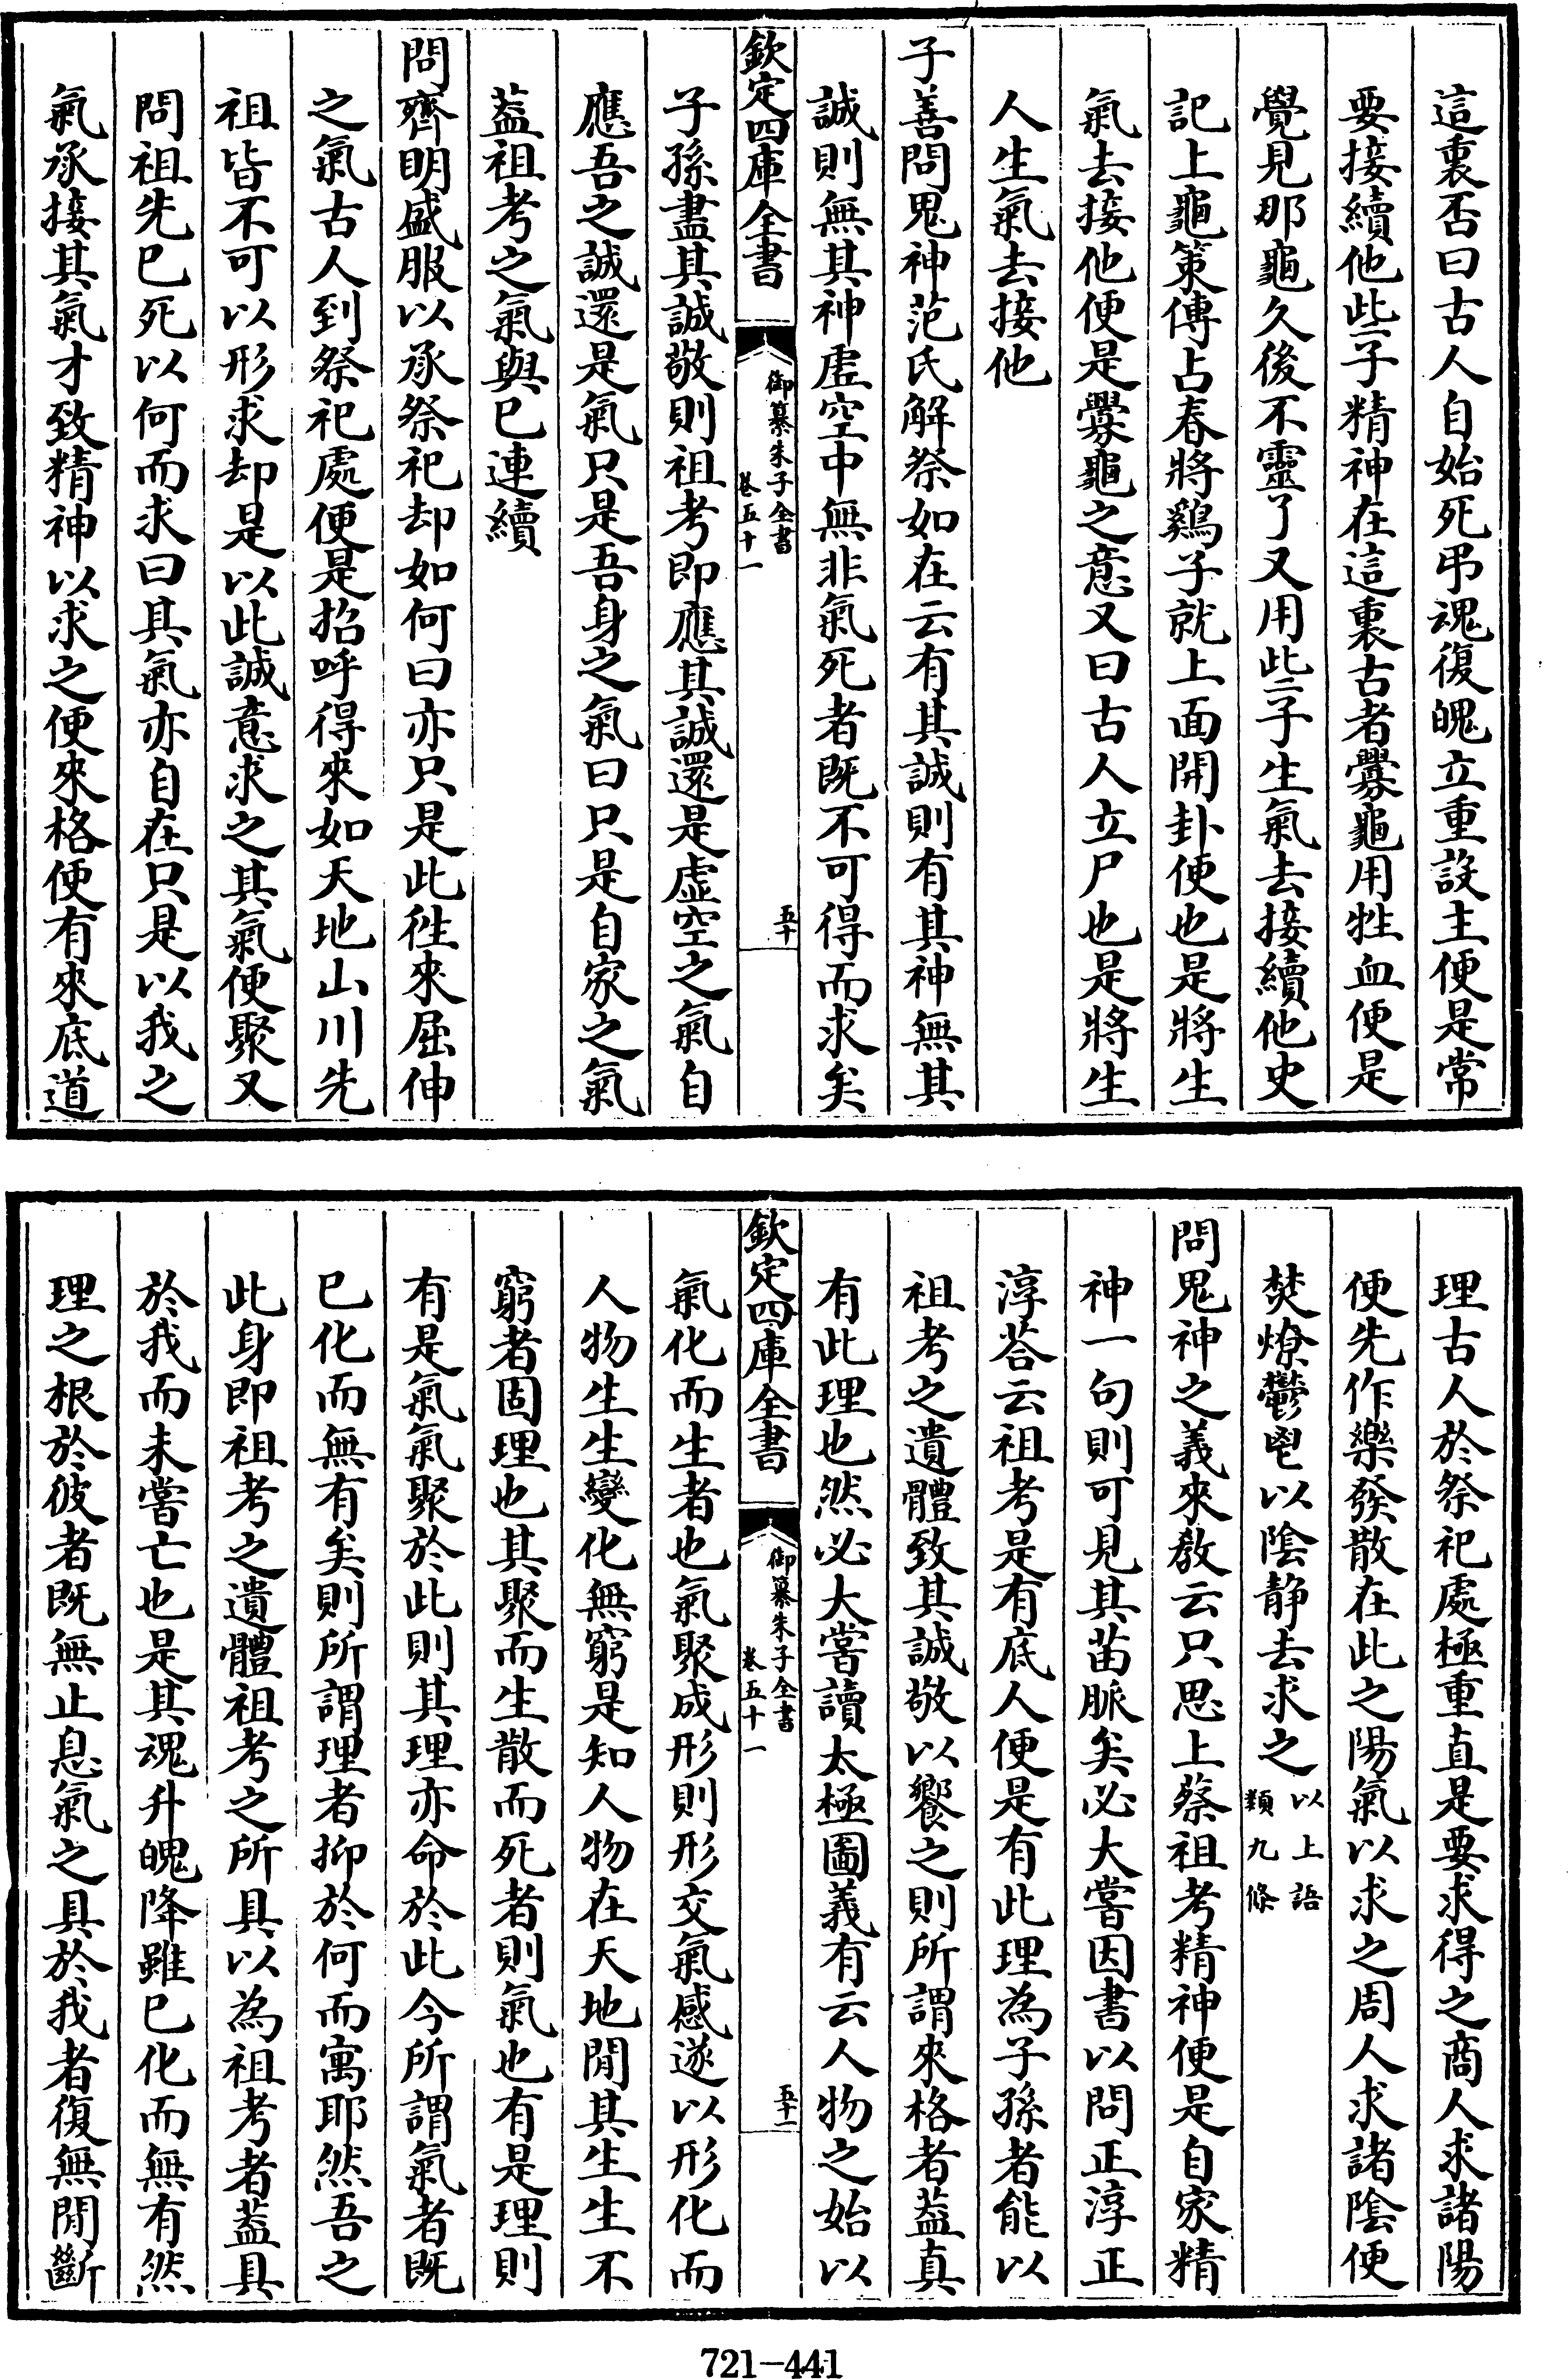 這裏否曰古人自始死弔魂復魄立重設主便是常
要接續他些子精神在這裏古者釁龜用牲血便是
覺見那龜久後不靈了又用些子生氣去接續他史
記上龜筴傳占春將雞子就上面開卦便也是將生
氣去接他便是釁龜之意又曰古人立尸也是將生
人生氣去接他
子善問鬼神范氏解祭如在云有其誠則有其神無其
誠則無其神虛空中無非氣死者既不可得而求矣
欽定四庫全書
御纂朱子全書
卷五十一
五十
子孫盡其誠敬則祖考即應其誠還是虛空之氣自
應吾之誠還是氣只是吾身之氣曰只是自家之氣
葢祖考之氣與已連續
問齊明盛服以承祭祀却如何曰亦只是此徃來屈伸
之氣古人到祭祀處便是招呼得來如天地山川先
祖皆不可以形求却是以此誠意求之其氣便聚又
問祖先已死以何而求曰其氣亦自在只是以我之
氣承接其氣才致精神以求之便來格便有來底道
理古人於祭祀處極重直是要求得之商人求諸陽
便先作樂發散在此之陽氣以求之周人求諸陰便
焚燎鬱鬯以陰静去求之以上語類九條
問鬼神之義來教云只思上蔡祖考精神便是自家精
神一句則可見其苗脈矣必大嘗因書以問正淳正
淳荅云祖考是有底人便是有此理為子孫者能以
祖考之遺體致其誠敬以饗之則所謂來格者葢真
有此理也然必大嘗讀太極圖義有云人物之始以
欽定四庫全書
御纂朱子全書
卷五十一
五十一
氣化而生者也氣聚成形則形交氣感遂以形化而
人物生生變化無窮是知人物在天地閒其生生不
窮者固理也其聚而生散而死者則氣也有是理則
有是氣氣聚於此則其理亦命於此今所謂氣者既
已化而無有矣則所謂理者抑於何而寓耶然吾之
此身即祖考之遺體祖考之所具以為祖考者葢具
於我而未嘗亡也是其魂升魄降雖已化而無有然
理之根於彼者既無止息氣之具於我者復無閒斷
721-441